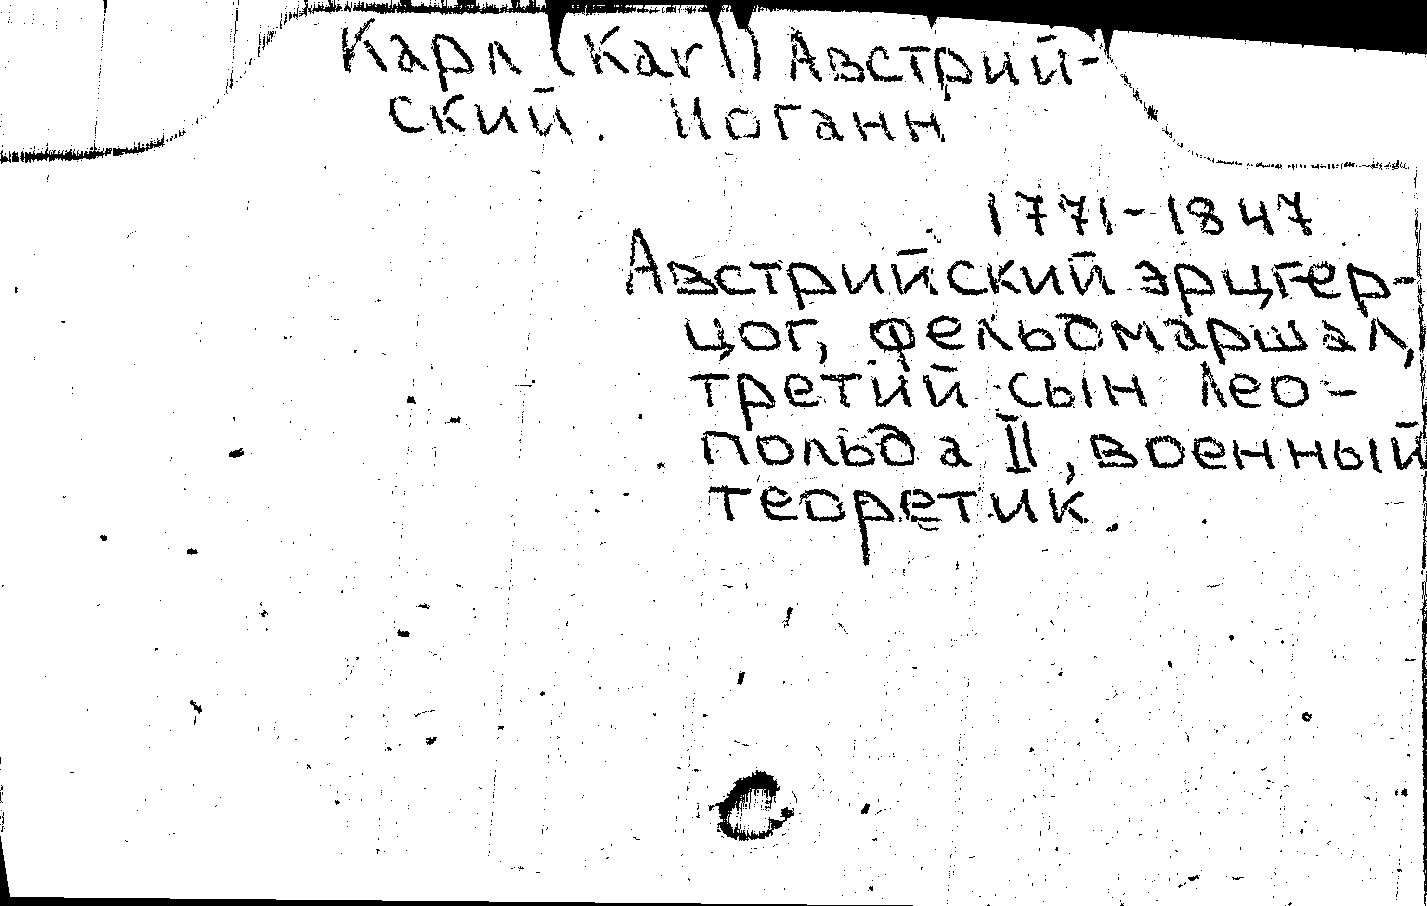 Карл (Karl) Австрий-
ский. Иоганн
1771-1847
Австрийский эрцгер-
цог, фельдмаршал,
третий сын Лео-
польда II, военный
теоретик.